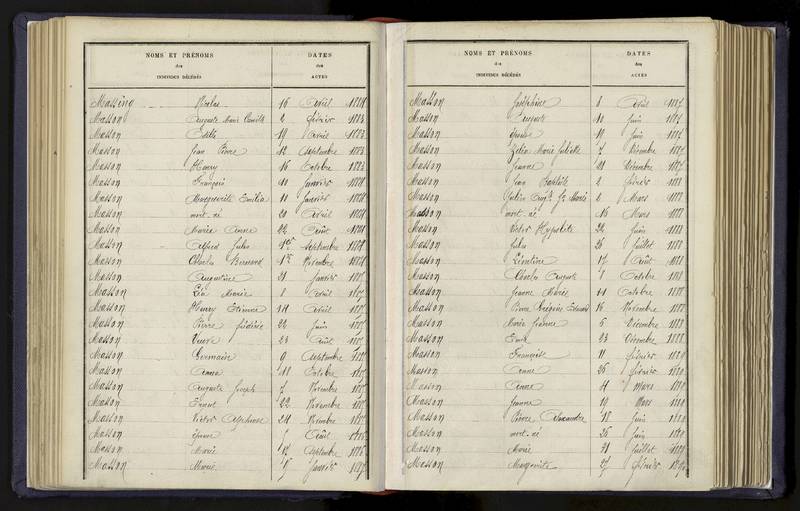 NOMS ET PRÉNOMS
des
INDIVIDUS DÉCÉDÉS
DATES
des
ACTES
Massing Nicolas 16 Avril
Masson Auguste Marie Camille 2 février 1883
Masson Edith 19 Avril 1883
Masson Jean Pierre 12 Septembre 1883
Masson Henry 16 Octobre 1883
Masson François 21 Janvier 1884
Masson Marguerite Emilia 11 Janvier 1884
Masson mort-né 20 Avril 1884
Masson Maria Anna 22 Août 1884
Masson Alfred Jules 1er Septembre 1884
Masson Charles Bernard 1er Novembre 1884
Masson Augustine 21 Janvier
Masson Léa Marie 8 Avril
Masson Henry Etienne Avril
Masson Pierre frédéric 22 Juin
Masson Veuve 23 Août
Masson Germain 9 Septembre
Masson Anna Octobre
Masson Auguste Joseph 7 Novembre
Masson Ernest 22 Novembre
Masson Victor Alphonse 24 Novembre
Masson Août
Masson Marie Septembre 1886
Masson Marie Janvier 1887
NOMS ET PRÉNOMS
des
INDIVIDUS DÉCÉDÉS
DATES
des
ACTES
Masson Joséphine 8 Avril 1887
Masson Auguste 10 Juin 1887
Masson 10 Juin 1887
Masson Zélia Marie Juliette 7 Décembre 1887
Masson Jeanne Décembre 1887
Masson Jean Baptiste 2 février 1888
Masson Marie 2 Mars 1888
Masson mort-né 16 Mars 1888
Masson Victor Hypolite 22 Juin 1888
Masson Jules 26 Juillet 1888
Masson Léontine 17 Août 1888
Masson Charles Auguste 7 Octobre 1888
Masson Jeanne Marie 11 Octobre 1888
Masson Pierre 16 Novembre 1888
Masson Marie Jeanne 5 Décembre 1888
Masson Emile 23 Décembre 1888
Masson Françoise 11 février 1889
Masson Anne 26 février 1889
Masson Anne 4 Mars 1889
Masson Jeanne 19 Mars 1889
Masson Pierre Alexandre 18 Juin 1889
Masson mort-né 26 Juin 1889
Masson Marie 21 Juillet 1889
Masson Marguerite 27 février